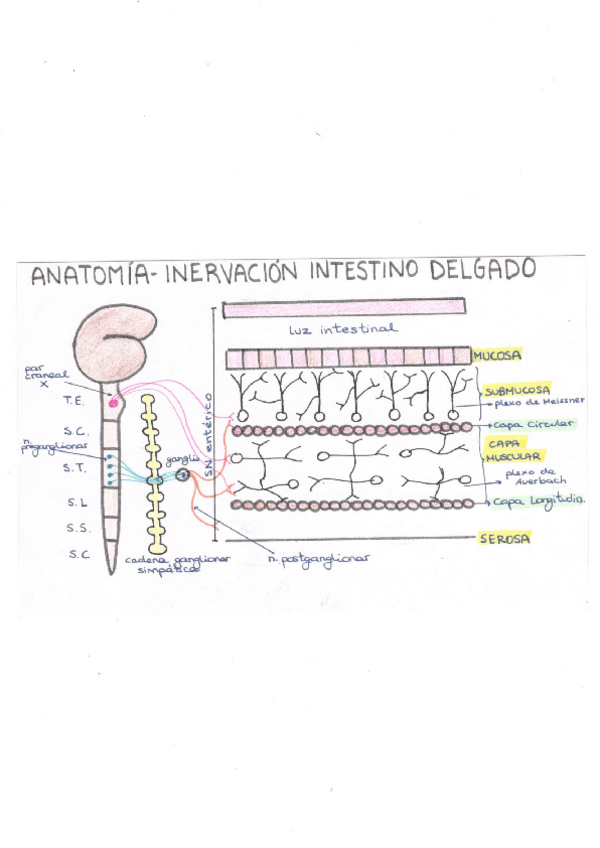 ANATOMÍA- INERVACIÓN INTESTINO DELGADO
luz intestinal
MUCOSA
par
craneal
X
T.E.
SUBMUCOSA
plexo de Meissner
S.N. entérico
S.C.
Capa Circular
n.
preganglionar
CAPA
MUSCULAR
ganglio
S.T.
plexo de
Auerbach
S.L
Capa Longitudin.
S.S.
SEROSA
S.C
cadena ganglionar
simpática
n. postganglionar